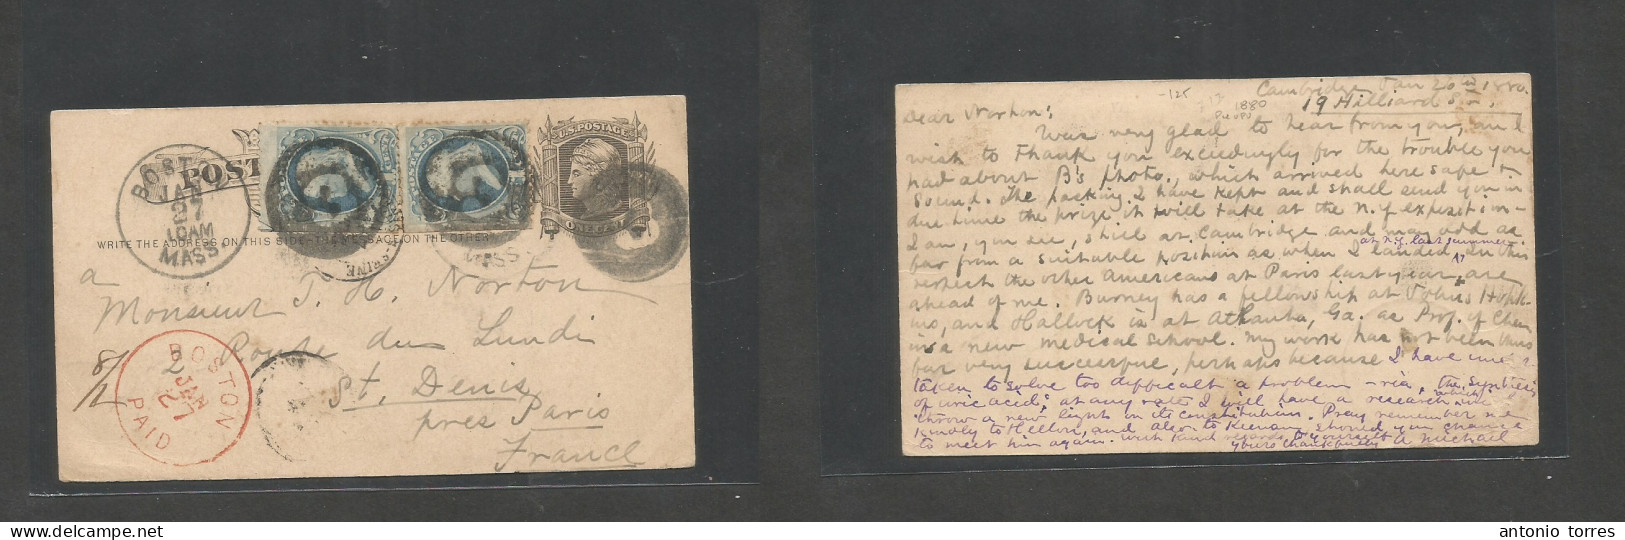 BOSTON
JAN
27
10AM
MASS
POST
U.S. POSTAGE
ONE CENT
WRITE THE ADDRESS ON THIS SIDE - THE MESSAGE ON THE OTHER
à
Monsieur T. H. Norton
2 Route du Lundi
St. Denis
près Paris
France
8/2
BOSTON
JAN
27
PAID
-125
1880
Cambridge Jan 26th 1880.
19 Hilliard St.,
Dear Norton:
Was very glad to hear from you, and
wish to thank you exceedingly for the trouble you
had about B's photo., which arrived here safe &
sound. The packing I have kept and shall send you in
due time the prize it will take at the N.Y. exposition-
I am, you see, still at Cambridge and may add as
far from a suitable position as when I landed at N.Y. last summer. In this
respect the other Americans at Paris last year, are
ahead of me. Burney has a fellowship at Johns Hopk-
ins, and Hallock is at Atlanta, Ga. as Prof. of Chem
in a new medical school. My work has not been thus
far very successful, perhaps because I have under
taken to solve too difficult a problem - via, the synthesis
of uric acid; at any rate I will have a research which
throw a new light on its constitution. Pray remember me
kindly to Hellon, and also to Keenan, should you chance
to meet him again. With kind regards to yourself
yours thankfully A Michael
antonio torres